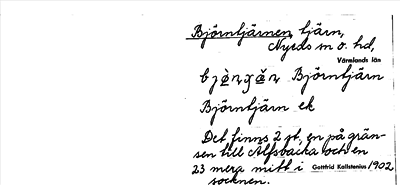 Björntjärnen, tjärn,
Nyeds sn o. hd,
Värmlands län
Björntjärn
Björntjärn ek
Det finns 2 st, en på grän-
sen till Alfsbacka och en
23 mera mitt i Gottfrid Kallstenius 1902
socknen.